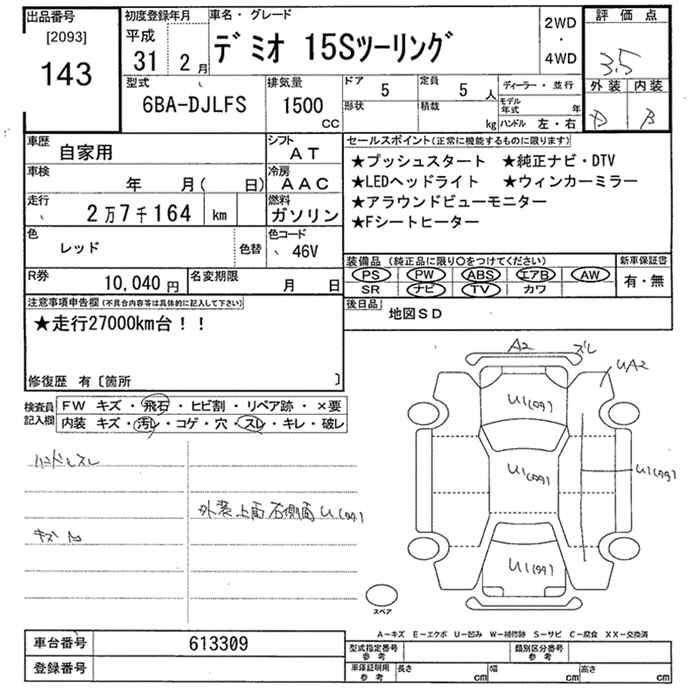 出品番号
[2093]
143
初度登録年月
平成
31 2月
車名・グレード
デミオ 15Sツーリング
2WD
・
4WD
評価点
3.5
外装 内装
B
型式
6BA-DJLFS
排気量
1500
CC
ドア 5
形状
定員 5人
積載 kg
ディーラー・並行
モデル年式 年
ハンドル 左・右
車歴
自家用
シフト
AT
車検
年 月( 日)
冷房
AAC
走行
2万7千164 km
燃料
ガソリン
色
レッド
色替
色コード
46V
R券 10,040円
名変期限 月 日
セールスポイント(正常に機能するものに限ります)
★プッシュスタート ★純正ナビ・DTV
★LEDヘッドライト ★ウィンカーミラー
★アラウンドビューモニター
★Fシートヒーター
装備品 (純正品に限り〇をつけてください)
PS PW ABS エアB AW
SR ナビ TV カワ
新車保証書
有・無
後日品
地図SD
注意事項申告欄(不具合内容等は具体的に記入して下さい)
★走行27000km台!!
修復歴 有〔箇所 〕
検査員
記入欄
FW キズ・飛石・ヒビ割・リペア跡・×要
内装 キズ・汚レ・コゲ・穴・スレ・キレ・破レ
ハンドルスレ
外装上面右側面U(99)
A2 スレ
UA2
U1(99)
U1(99)
U1(99)
U1(99)
スペア
A-キズ E-エクボ U-凹み W-補修跡 S-サビ C-腐食 XX-交換済
車台番号 613309
登録番号
型式指定番号
参考
類別区分番号
参考
車庫証明用
参考
長さ cm
幅 cm
高さ cm